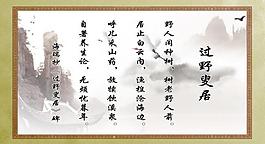 过野叟居
野人闲种树,树老野人前。
居止白云内,渔樵沧海边。
呼儿采山药,放犊饮溪泉。
自著养生论,无烦忧暮年。